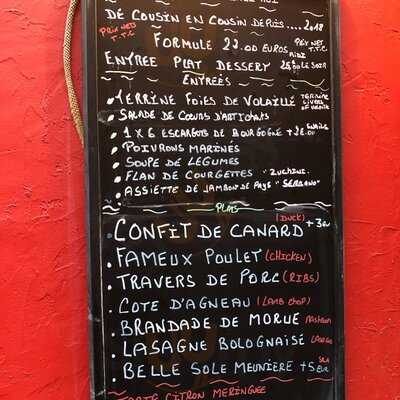 DE COUSIN EN COUSIN DEPUIS....2018
PRIX NET T.T.C
FORMULE 22.00 EUROS
PRIX NET MIDI
ENTREE PLAT DESSERT 25.00 LE SOIR
ENTREÉS
TERRINE FOIES DE VOLAILLE TERRINE LIVERS
SALADE DE COEURS D'ARTICHAUTS
1 X 6 ESCARGOTS DE BOURGOGNE +2€.00 SNAILS
POIVRONS MARINÉS
SOUPE DE LEGUMES
FLAN DE COURGETTES "ZUCHINI"
ASSIETTE DE JAMBON DE PAYS "SERRANO"
PLATS
(DUCK)
CONFIT DE CANARD +3€
FAMEUX POULET (CHICKEN)
TRAVERS DE PORC (RIBS)
COTE D'AGNEAU (LAMB CHOP)
BRANDADE DE MORUE
LASAGNE BOLOGNAISE
BELLE SOLE MEUNIÈRE +5€
TARTE CITRON MERINGUÉE